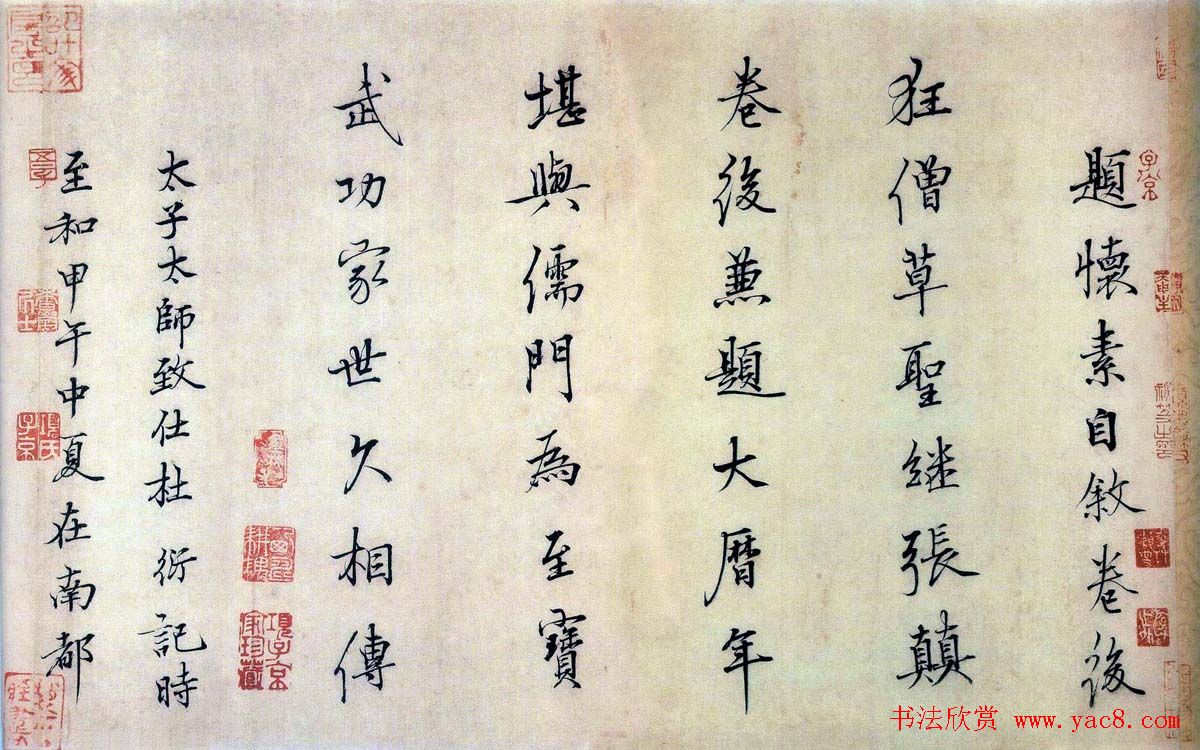 題懷素自敘卷後
狂僧草聖繼張顛
卷後兼題大曆年
堪與儒門為至寶
武功家世久相傳
太子太師致仕杜衍記時
至和甲午中夏在南都
子京
項氏子京
項子京家珍藏
书法欣赏 www.yac8.com